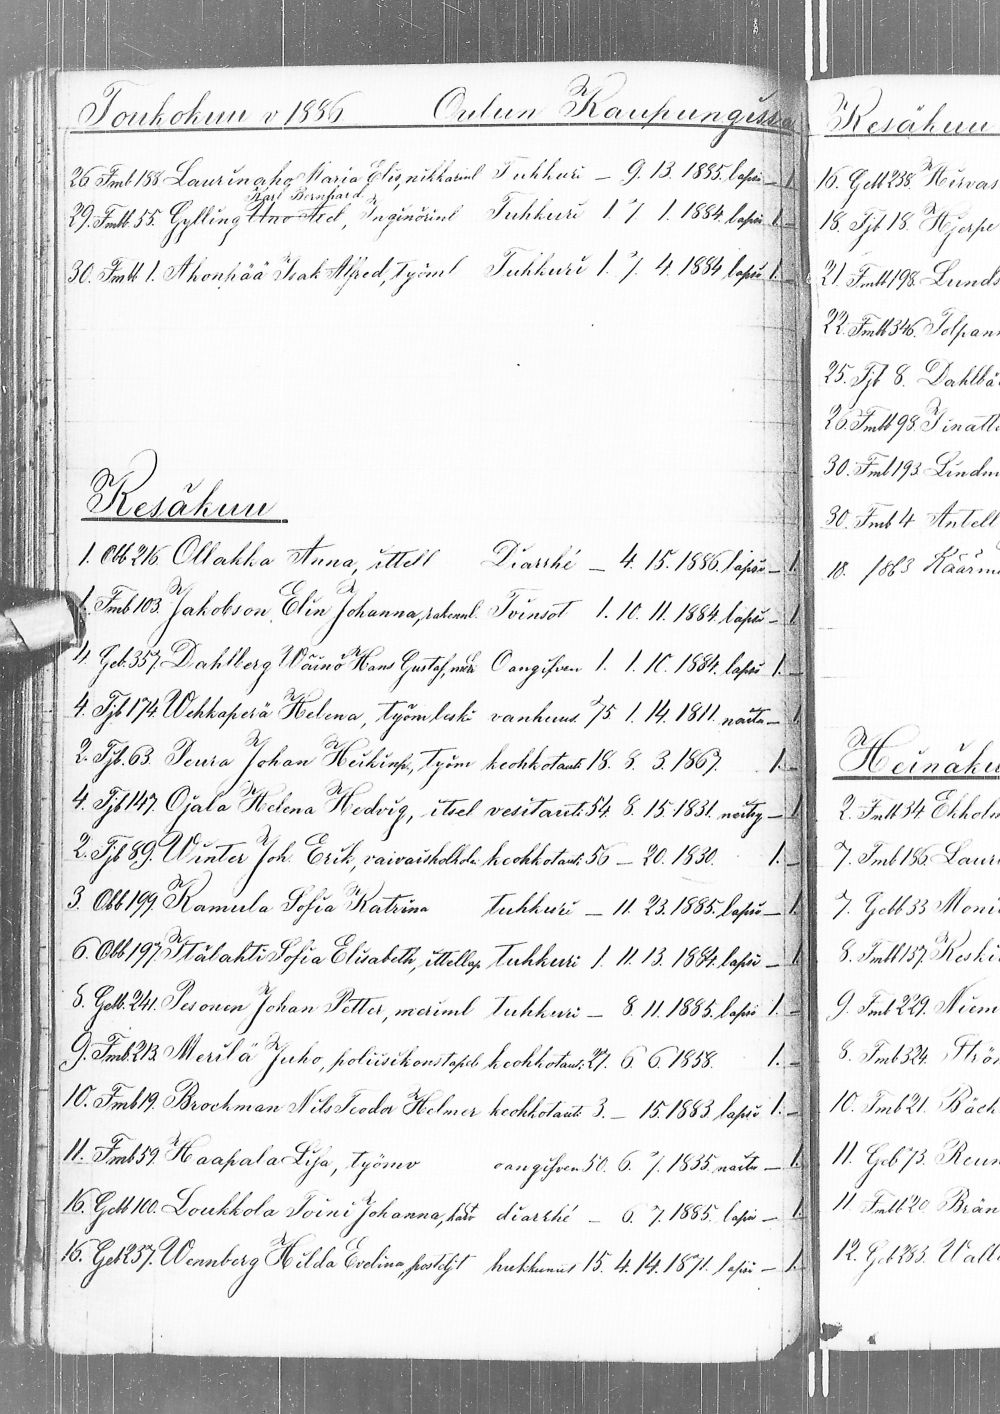 Toukokuu v 1886 Oulun Kaupungissa
26. Fmb 188 Laurinaho Maria Elis, nikkarinl Tuhkuri — 9. 13. 1885. lapsi — 1.
Karl Bernhard
29. Fmtb. 55. Gylling Uno Axel, Inginörinl Tuhkuri 1. 7 1. 1884. lapsi 1.
30. Fmtb 1. Ahonpää Isak Alfred, työml Tuhkuri 1. 7. 4. 1884 lapsi 1. —
Kesäkuu
1. Obb 216. Ollakka Anna, ittell Diarrhé — 4. 15. 1886. lapsi — 1.
1. Fmb 103. Jakobson Elin Johanna, rakennl. Tvinsot 1. 10. 11. 1884. lapsi — 1
4. Geb. 357. Dahlberg Wäinö Hans Gustaf, Oangifven 1. 1. 10. 1884. lapsi 1. —
4. Tjb 174. Wehkaperä Helena, työm leski vanhuus. 75 1. 14. 1811. naitu — 1
2. Tjb. 63. Peura Johan Heikinp, työm keohkotauti 18. 8. 3. 1867. 1. —
4. Tjb 147. Ojala Helena Hedvig, itsel vesitauti 54. 8. 15. 1831. — 1.
2. Tjb 89. Winter Joh. Erik, vaivaishoihola keohkotauti 56 — 20. 1830. 1. —
3. Obb 199. Kamula Sofia Katrina tuhkuri — 11. 23. 1885. lapsi — 1.
6. Obb 197. Itälahti Sofia Elisabeth, ittellap tuhkuri 1. 11. 13. 1884. lapsi — 1.
8. Getb. 241. Pesonen Johan Petter, meriml tuhkuri — 8. 11. 1885. lapsi 1. —
9. Fmb. 213. Merilä Juho, poliisikonstapeli keohkotaut. 27. 6. 6. 1858. 1. —
10. Fmb 19. Brochman Nils Teodor Helmer keohkotauti 3. — 15. 1883 lapsi 1. —
11. Fmb 59. Haapala Lisa, työmv oangifven 50. 6. 7. 1835 naitu — 1.
16. Getb 100. Loukkola Toini Johanna, diarrhé — 6. 7. 1885. lapsi — 1.
16. Geb 237. Wennberg Hilda Evelina, hukkunut 15. 4. 14. 1871. lapsi — 1.
Kesäkuu
16. Getb 238. Hirvas
18. Tjb 18. Hjerpe
21. Fmtb 198. Lunds
22. Fmtb 346. Tolpann
25. Tjb 8. Dahlbä
26. Fmtb 98.
30. Fmb 193. Lindm
30. Fmb 4 Antell
18. 1863 Käärm
Heinäku
2. Fmtb 34. Ekholm
7. Fmb 186. Lauri
7. Getb 33 Moni
8. Fmtb 157. Keski
9. Fmb 229. Niem
8. Fmb 324. Strö
10. Fmb 21. Bäck
11. Geb 73. Reun
11. Fmtb 20 Brän
12. Geb 283. Wall